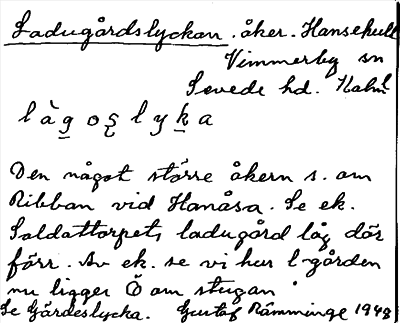 Ladugårdslyckan . åker . Hansekull
Vimmerby sn
Sevede hd. Kalm. l
làgo̧s̨lyka
Den något större åkern s. om
Ribban vid Hanåsa. Se ek.
Soldattorpets ladugård låg där
förr. Av ek. se vi hur l-gården
nu ligger Ö om stugan.
Se Gärdeslycka. Gustaf Rämminge 1948